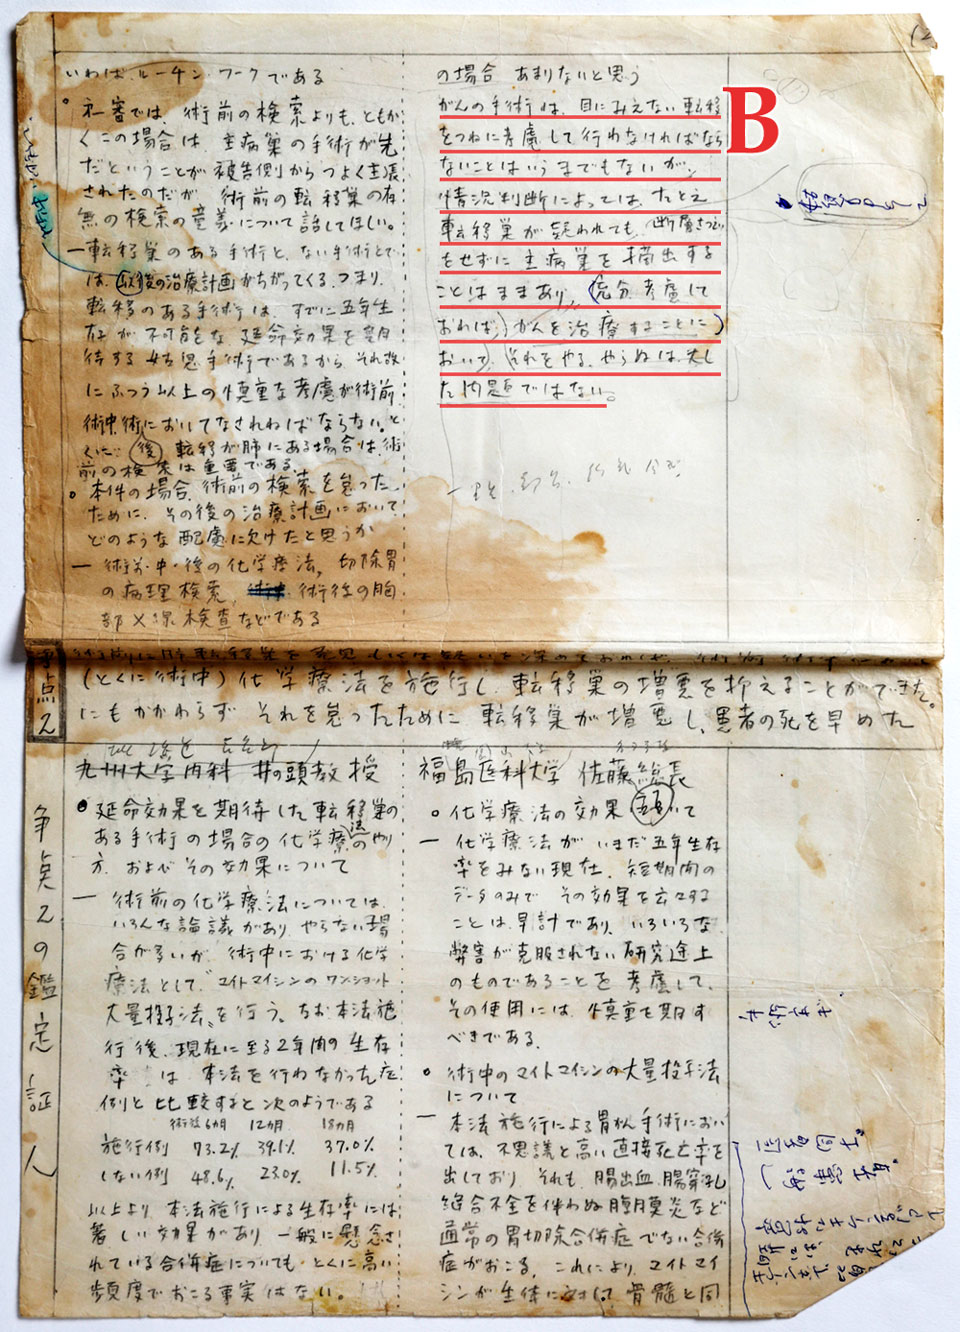 いわば、ルーチン・ワークである
○ 和審では、術前の検索よりも、ともか
くこの場合は、主病巣の手術が先
だということが被告側からつよく主張
されたのだが、術前の転移巣の有
無の検索の意義について話してほしい。
一 転移巣のある手術と、ない手術とで
は、以後の治療計画がちがってくる。つまり、
転移のある手術は、すでに五年生
存が不可能な、延命効果を期
待する姑息手術であるから、それ故
にふつう以上の慎重な考慮が術前
術中、術においてなされねばならない。と
くに、後 転移が肺にある場合は、術
前の検索は重要である。
○ 本件の場合、術前の検索を怠った
ために、その後の治療計画において
どのような配慮に欠けたと思うか
一 術前・中・後の化学療法、切除胃
の病理検索、術後の胸
部X線検査などである
の場合 あまりないと思う
がんの手術は、目にみえない転移
をつねに考慮して行わなければなら
ないことはいうまでもないが、
情況判断によっては、たとえ
転移巣が疑われても、断層さつえい
をせずに主病巣を摘出する
ことはままあり、(充分考慮して
おれば)がんを治療することに
おいて、それをやる、やらぬは大し
た問題ではない。
B
点2
(とくに術中)化学療法を施行し、転移巣の増悪を抑えることができた。
にもかかわらず それを怠ったために 転移巣が増悪し、患者の死を早めた
争点2の鑑定証人
九州大学内科 井の頭教授
● 延命効果を期待した転移巣の
ある手術の場合の化学療法のやり
方、およびその効果について
一 術前の化学療法については、
いろんな論議があり、やらない場
合が多いが、術中における化学
療法として、マイトマイシンのワンショット
大量投与法を行う。なお本法施
行後、現在に至る2年間の生存
率は、本法を行わなかった症
例と比較すると次のようである
術後6カ月 12カ月 18カ月
施行例 73.2% 39.1% 37.0%
しない例 48.6% 23.0% 11.5%
以上より、本法施行による生存率には
著しい効果があり、一般に懸念さ
れている合併症についても、とくに高い
頻度でおこる事実はない。
福島医科大学 佐藤総長
○ 化学療法の効果について
一 化学療法が、いまだ五年生存
率をみない現在、短期間の
データのみで、その効果を云々する
ことは、早計であり、いろいろな
弊害が克服されない研究途上
のものであることを考慮して、
その使用には、慎重を期す
べきである。
○ 術中のマイトマイシンの大量投与法
について
一 本法施行による胃がん手術におい
ては、不思議と高い直接死亡率を
出しており、それも、腸出血、腸穿孔
縫合不全を伴わぬ腹膜炎など
通常の胃切除合併症でない合併
症がおこる。これにより、マイトマイ
シンが生体に対して骨髄と同